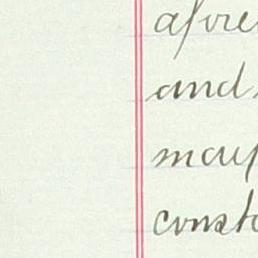 afore
and
may
consta